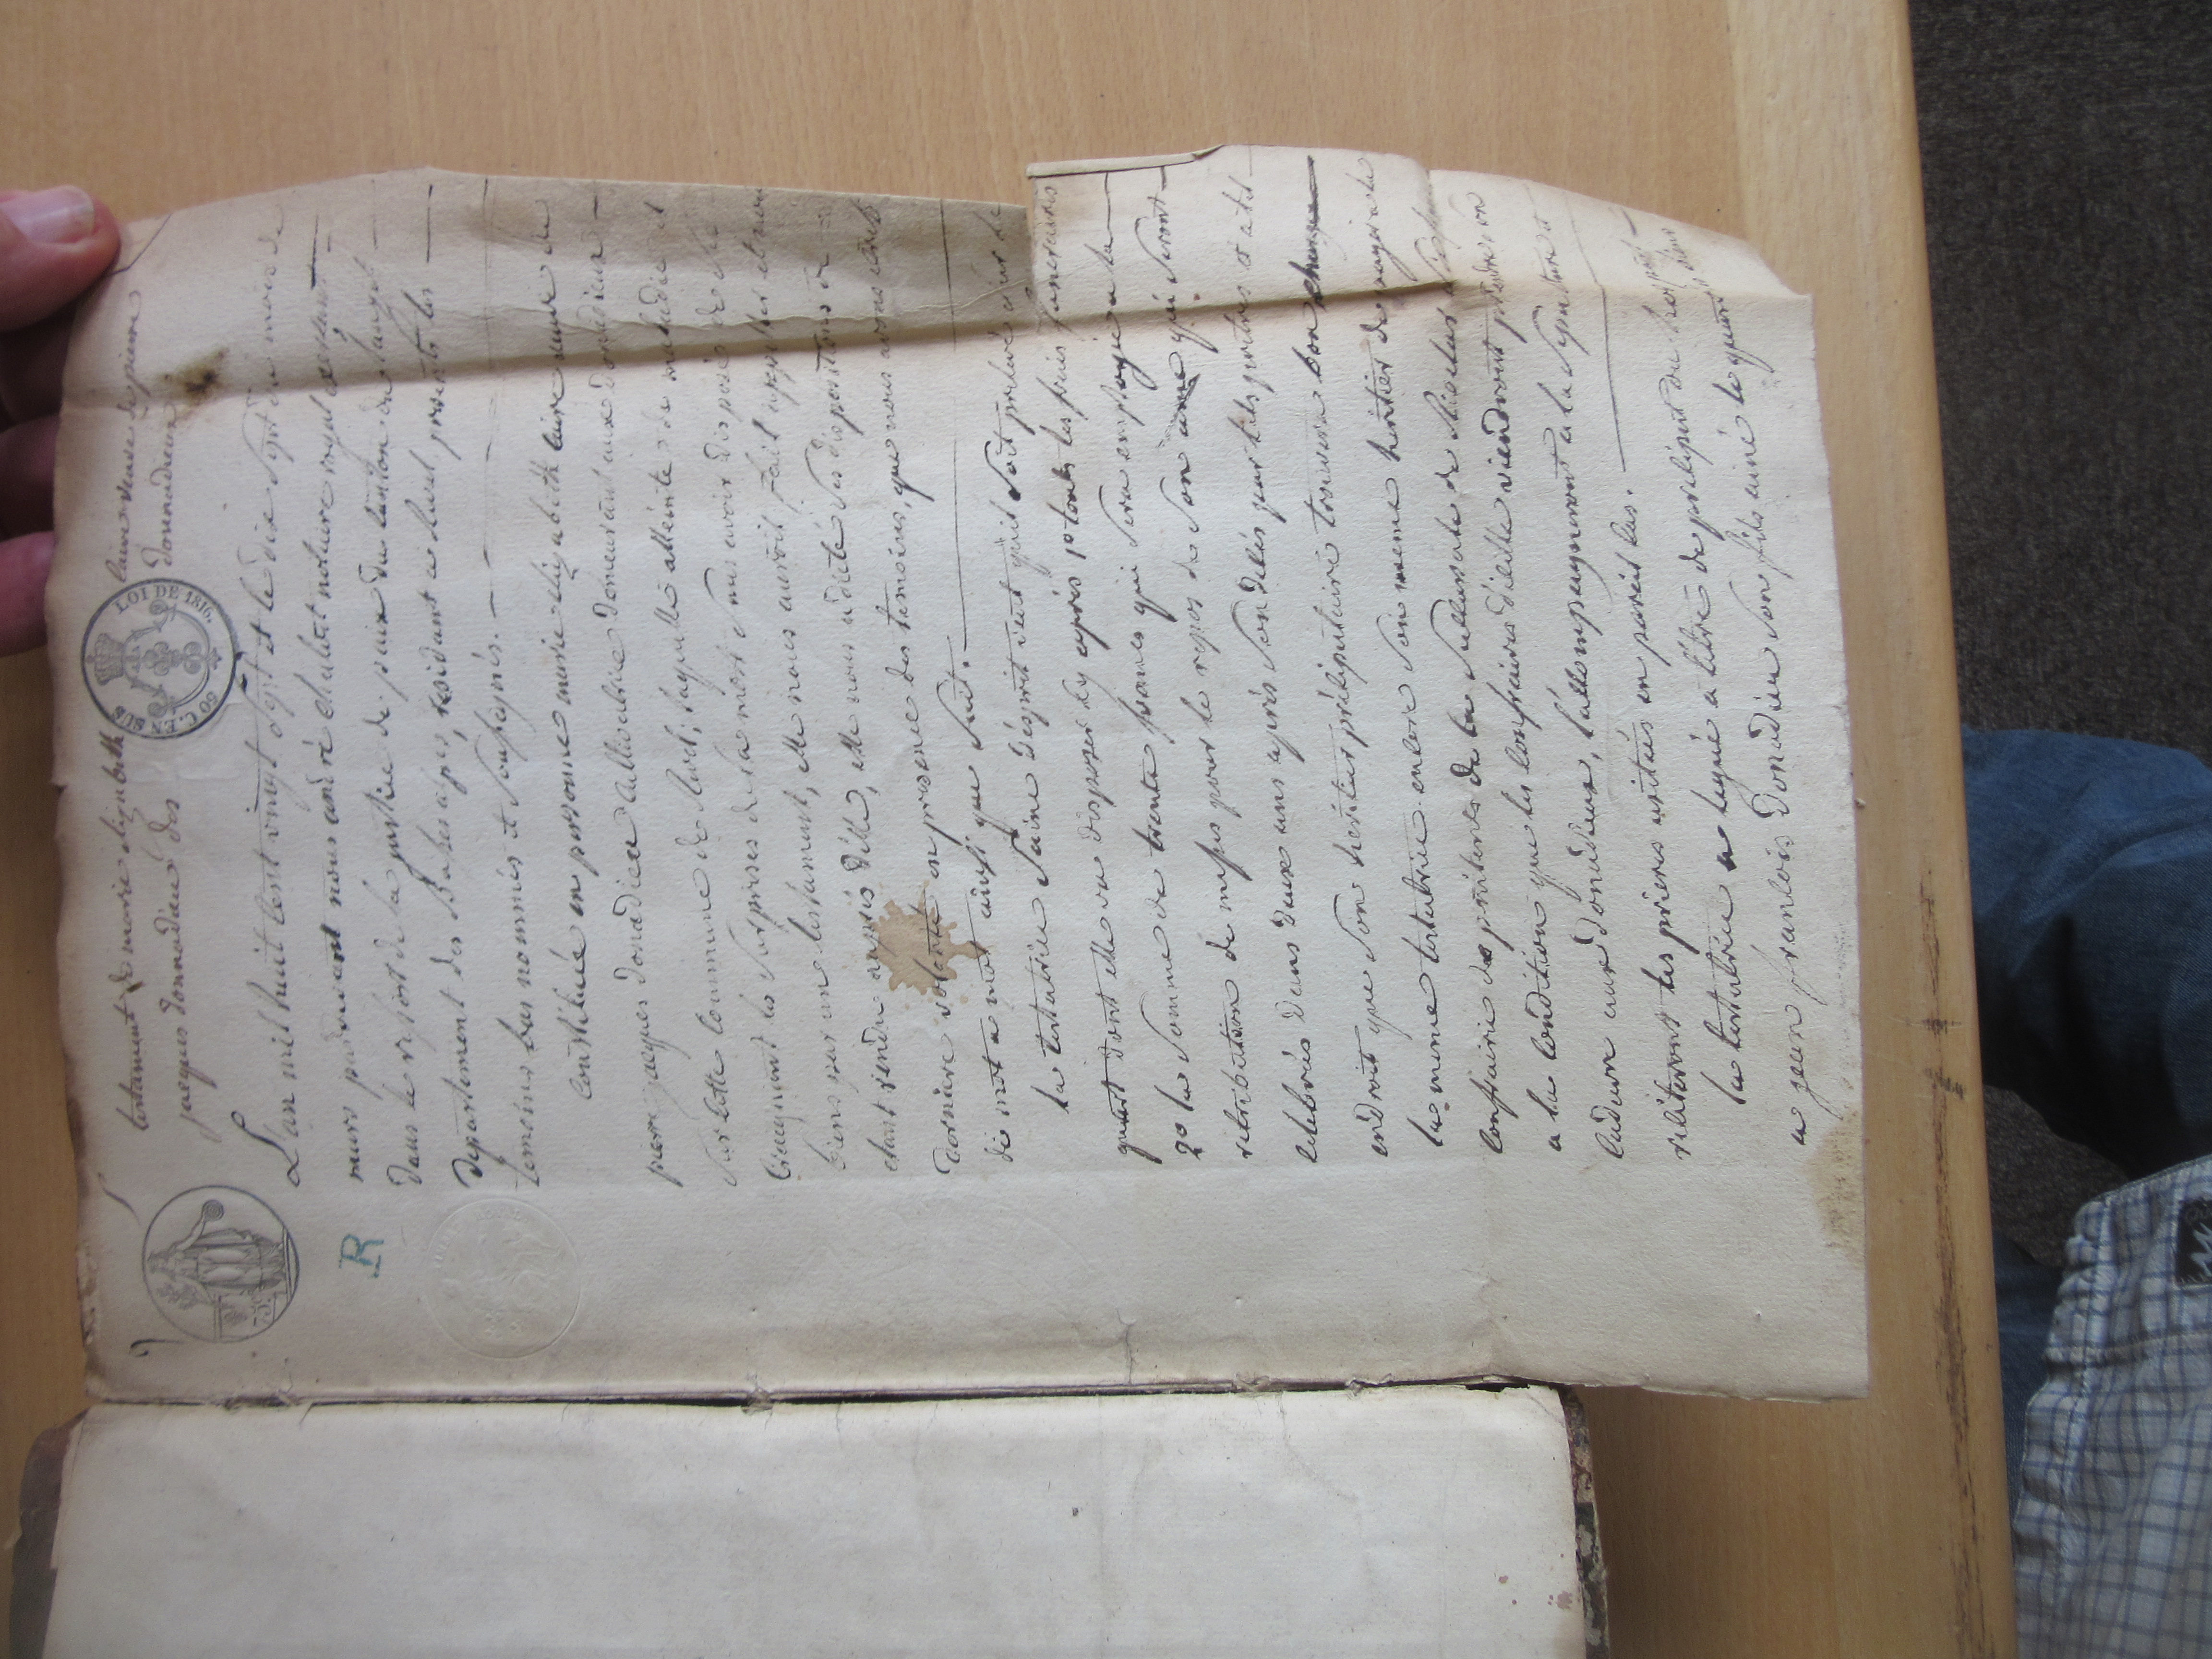 testament de marie elizabeth laire veuve de pierre
jacques donnadieu des donnadieux
LOI DE 1816.
50 C. ET SUS
R
L'an mil huit cent vingt sept et le dix sept du mois de
mars pardevant nous andré chabert notaire royal
dans le ressort de la justice de paix du canton du
département des Basses alpes, residant a Revel present les
temoins bas nommés et soussignés.
constituée en personne marie elizabeth laire veuve de
pierre jacques donadieu cultivatrice demeurant aux donadieux
sur cette commune de Revel, laquelle atteinte de maladie et
Craignant les surprises de la mort sans avoir disposé de ses
biens par un testament, elle nous auroit fait appeller et nous
étant rendu auprès d'elle, elle nous a dicté ses dispositions de
derniere volonté en presence des temoins, que nous avons ecrits
de mot a mot ainsi que suit.
la testatrice saine d'esprit veut qu'il soit prelevé sur le
quart dont elle va disposer cy après 1º toutes les frais funeraires
2º la somme de trente francs qui sera employée a la
retribution de messes pour le repos de son ame qui seront
celebrés dans deux ans après son décès par tels pretres et a tel
endroit que son heritier préciputaire trouvera bon
la meme testatrice encore son meme heritier de payer a la
confrairie des penitents de la succursale de
a la condition que les confraires d'icelle viendront prendre son
cadavre aux donadieux, l'accompagneront a la sepulture et
reciteront les prieres usitées en pareil cas.
la testatrice a legué a titre de preciput
a jean françois Donadieu son fils ainé le quart